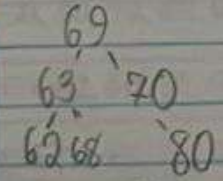 69
63 70
62 68 80